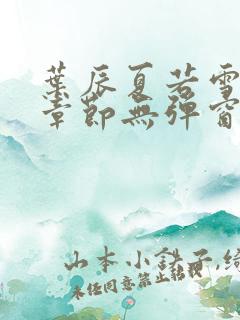 葉辰夏若雪
章節無彈窗
山本小鐵子,綠
未任同意禁止轉載